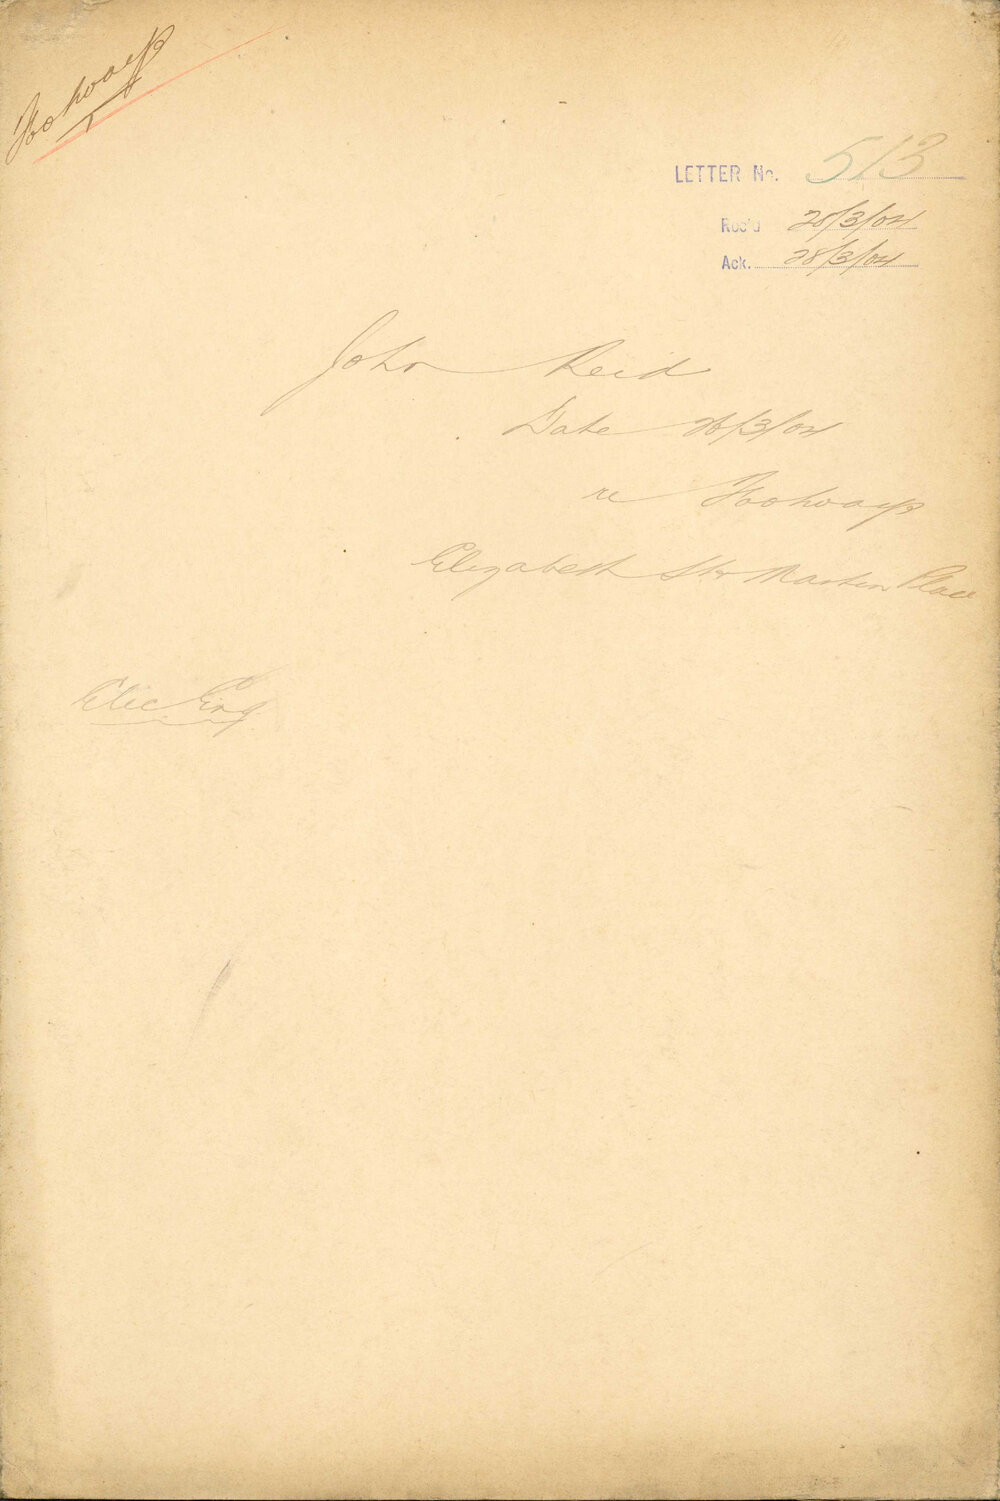 Footways
LETTER No. 513
Rec'd 28/3/04
Ack. 28/3/04
John Reid
Date 26/3/04
re Footways
Elizabeth St & Martin Place
Elec Eng